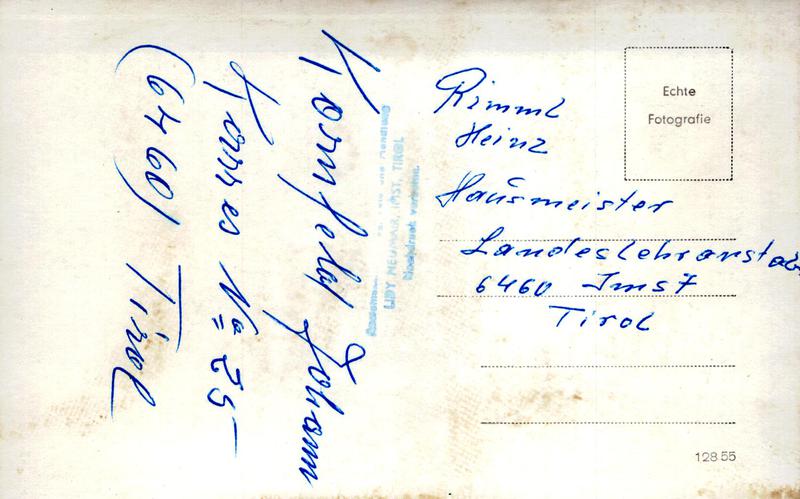 Kornfeld Johann
Karres № 25
(6460) Tirol
LIDY NEUMAIR, IMST, TIROL
Nachdruck verboten.
Echte
Fotografie
Rimml
Heinz
Hausmeister
Landeslehranstalt
6460 Imst
Tirol
128 55